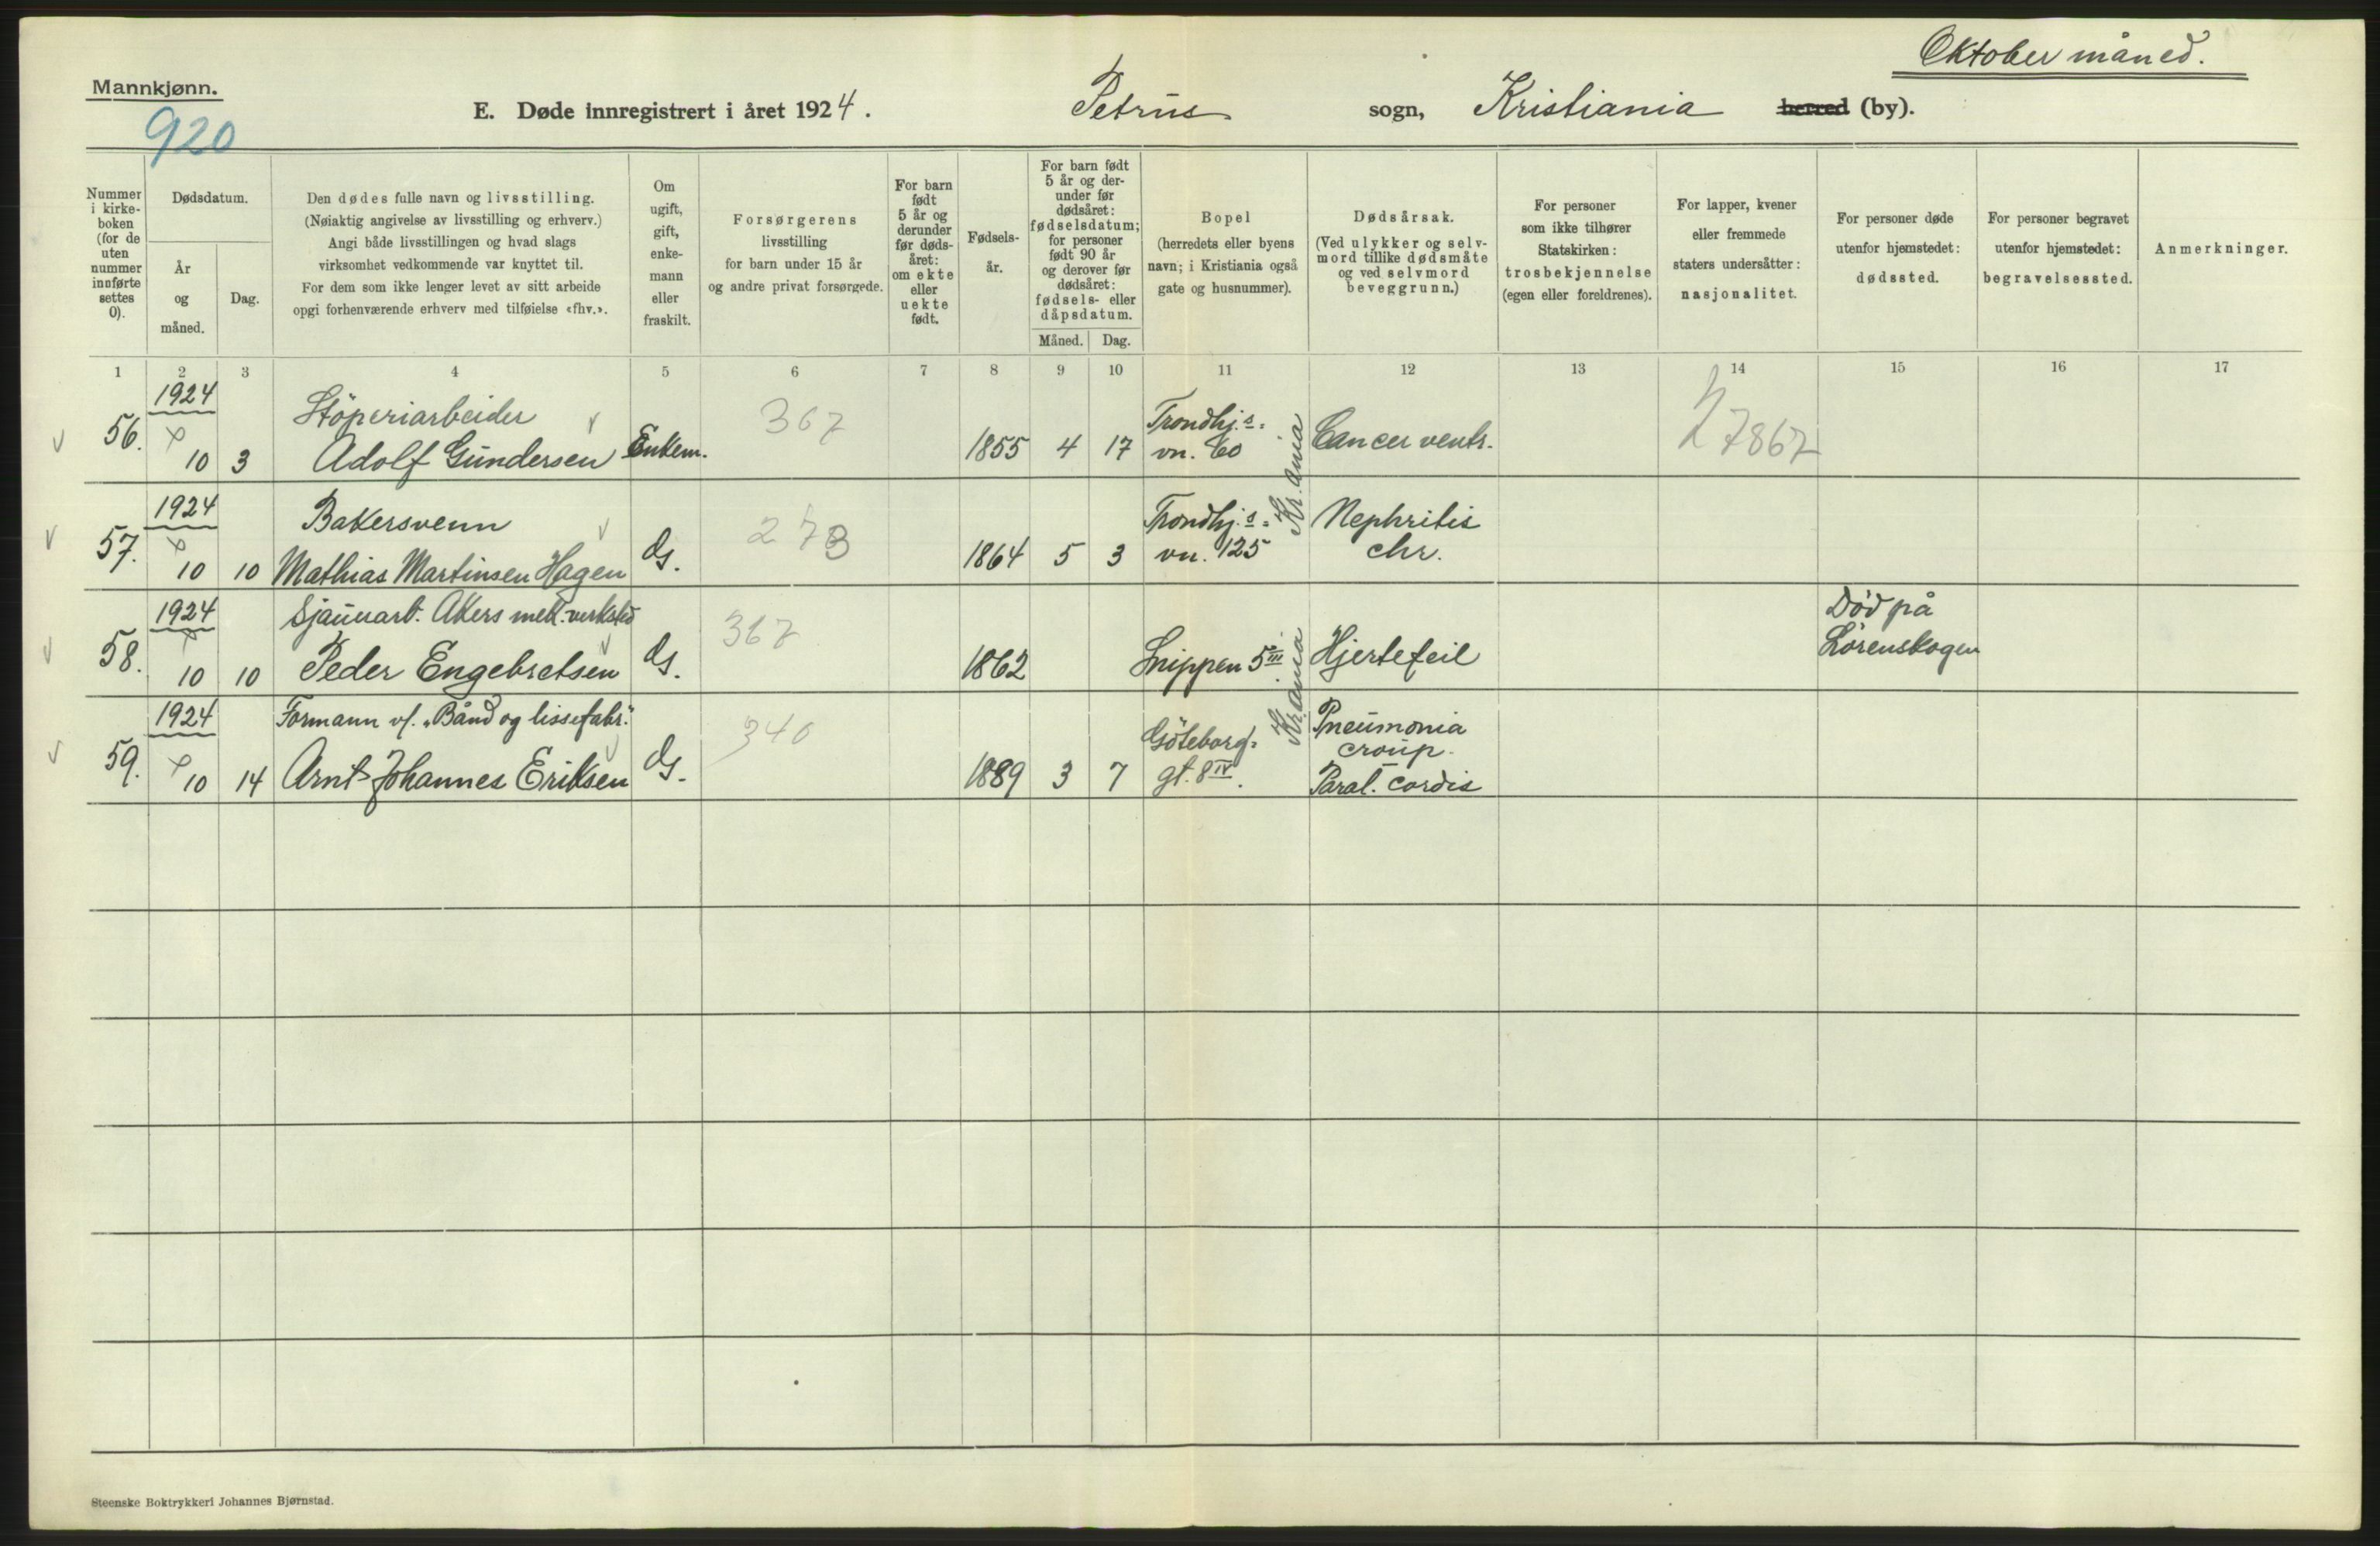 Oktober måned.
Mannkjønn.
E. Døde innregistrert i året 1924. Petrus sogn, Kristiania herred (by).
920
Nummer i kirkeboken (for de uten nummer innførte settes 0).
Dødsdatum.
År og måned.
Dag.
Den dødes fulle navn og livsstilling.
(Nøiaktig angivelse av livsstilling og erhverv.)
Angi både livsstillingen og hvad slags
virksomhet vedkommende var knyttet til.
For dem som ikke lenger levet av sitt arbeide
opgi forhenværende erhverv med tilføielse «fhv.».
Om ugift, gift, enkemann eller fraskilt.
Forsørgerens
livsstilling
for barn under 15 år
og andre privat forsørgede.
For barn født 5 år og derunder før dødsåret: om ekte eller uekte født.
Fødselsår.
For barn født 5 år og derunder før dødsåret: fødselsdatum; for personer født 90 år og derover før dødsåret: fødsels- eller dåpsdatum.
Måned. Dag.
Bopel
(herredets eller byens
navn; i Kristiania også
gate og husnummer).
Dødsårsak.
(Ved ulykker og selvmord tillike dødsmåte og ved selvmord beveggrunn.)
For personer
som ikke tilhører
Statskirken:
trosbekjennelse
(egen eller foreldrenes).
For lapper, kvener
eller fremmede
staters undersåtter:
nasjonalitet.
For personer døde
utenfor hjemstedet:
dødssted.
For personer begravet
utenfor hjemstedet:
begravelsessted.
Anmerkninger.
1 2 3 4 5 6 7 8 9 10 11 12 13 14 15 16 17
1924 Støperiarbeider 367 Trondhj.s=
56. 10 3 Adolf Gundersen Enkem. 1855 4 17 vn. 60 Kr.ania Cancer ventr. 7867
1924 Bakersvenn 273 Trondhj.s= Nephritis
57. 10 10 Mathias Martinsen Hagen G. 1864 5 3 vn. 125 chr.
1924 Sjauuarb. Akers mek. verksted 367 Død på
58. 10 10 Peder Engebretsen G. 1862 Snippen 5 III. Kr.ania Hjertefeil Lørenskogen
1924 Formann v/. "Bånd og lissefabr." 340 Göteborg= Pneumonia
croup.
59. 10 14 Arnt Johannes Eriksen G. 1889 3 7 gt. 8 IV. Paral. cordis
Steenske Boktrykkeri Johannes Bjørnstad.